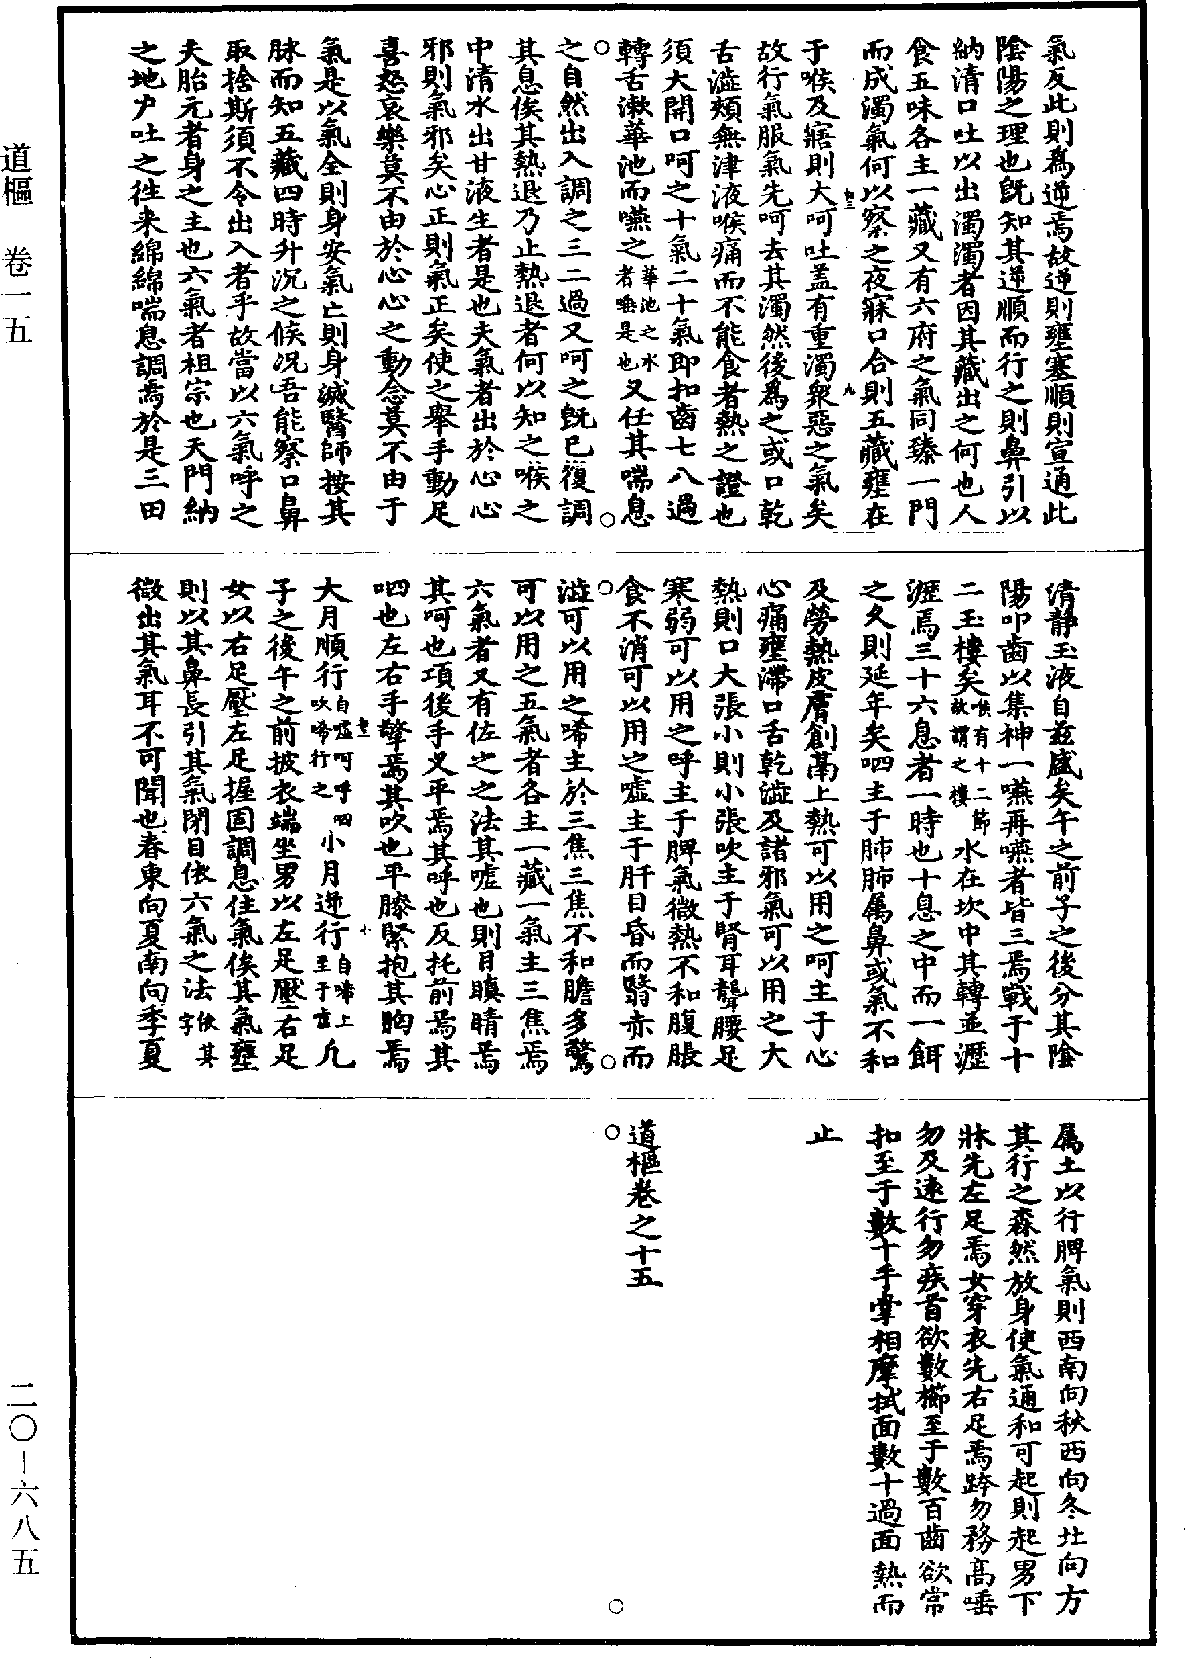 道樞　卷一五
氣反此則爲逆焉故逆則壅塞順則宣通此
陰陽之理也旣知其逆順而行之則鼻引以
納清口吐以出濁濁者因其藏出之何也人
食五味各主一藏又有六府之氣同臻一門
而成濁氣何以察之夜寐口合則五藏壅在
于喉及寤則大呵吐盖有重濁衆惡之氣矣
故行氣服氣先呵去其濁然後爲之或口乾
舌澁頰無津液喉痛而不能食者熱之證也
須大開口呵之十氣二十氣即扣齒七八過
轉舌漱華池而嚥之華池之水者唾是也又任其喘息
之自然出入調之三二過又呵之旣已復調
其息俟其熱退乃止熱退者何以知之喉之
中清水出甘液生者是也夫氣者出於心心
邪則氣邪矣心正則氣正矣使之舉手動足
喜怒哀樂莫不由於心心之動念莫不由于
氣是以氣全則身安氣亡則身滅醫師按其
脉而知五藏四時升沉之候况吾能察口鼻
取捨斯須不令出入者乎故當以六氣呼之
夫胎元者身之主也六氣者祖宗也天門納
之地户吐之往来綿綿喘息調焉於是三田
清靜玉液自兹盛矣午之前子之後分其陰
陽叩齒以集神一嚥再嚥者皆三焉戰于十
二玉樓矣喉有十二節故謂之樓水在坎中其轉並瀝
瀝焉三十六息者一時也十息之中而一餌
之久則延年矣呬主于肺肺屬鼻或氣不和
及勞熱皮膚創萵上熱可以用之呵主于心
心痛壅滯口舌乾澁及諸邪氣可以用之大
熱則口大張小則小張吹主于腎耳聾腰足
寒弱可以用之呼主于脾氣微熱不和腹脹
食不消可以用之噓主于肝目昏而翳赤而
澁可以用之唏主於三焦三焦不和膽多驚
可以用之五氣者各主一藏一氣主三焦焉
六氣者又有佐之之法其噓也則目瞋睛焉
其呵也項後手叉平焉其呼也反托前焉其
呬也左右手擎焉其吹也平膝緊抱其胸焉
大月順行自噓呵呼呬吹唏行之小月逆行自唏上至于噓凡
子之後午之前披衣端坐男以左足壓右足
女以右足壓左足握固調息住氣俟其氣壅
則以其鼻長引其氣閉目依六氣之法依其字
微出其氣耳不可聞也春東向夏南向季夏
屬土以行脾氣則西南向秋西向冬北向方
其行之森然放身使氣通和可起則起男下
牀先左足焉女穿衣先右足焉跨勿務高唾
勿及遠行勿疾首欲數櫛至于數百齒欲常
扣至于數十手掌相摩拭面數十過面熱而
止
道樞卷之十五
二〇—六八五